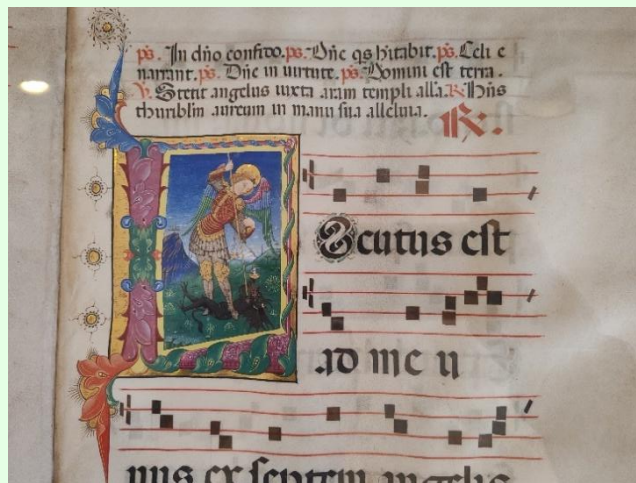 ps. In dño confido. ps. Dñe qs hitabit. ps. Celi e
narrant. ps. Dñe in uirtute. ps. Domini est terra.
V. Stetit angelus iuxta aram templi alla. R. Hñs
thuriblm aureum in manu sua alleluia.
R.
Locutus est
ad me u
nus ex septem angelis